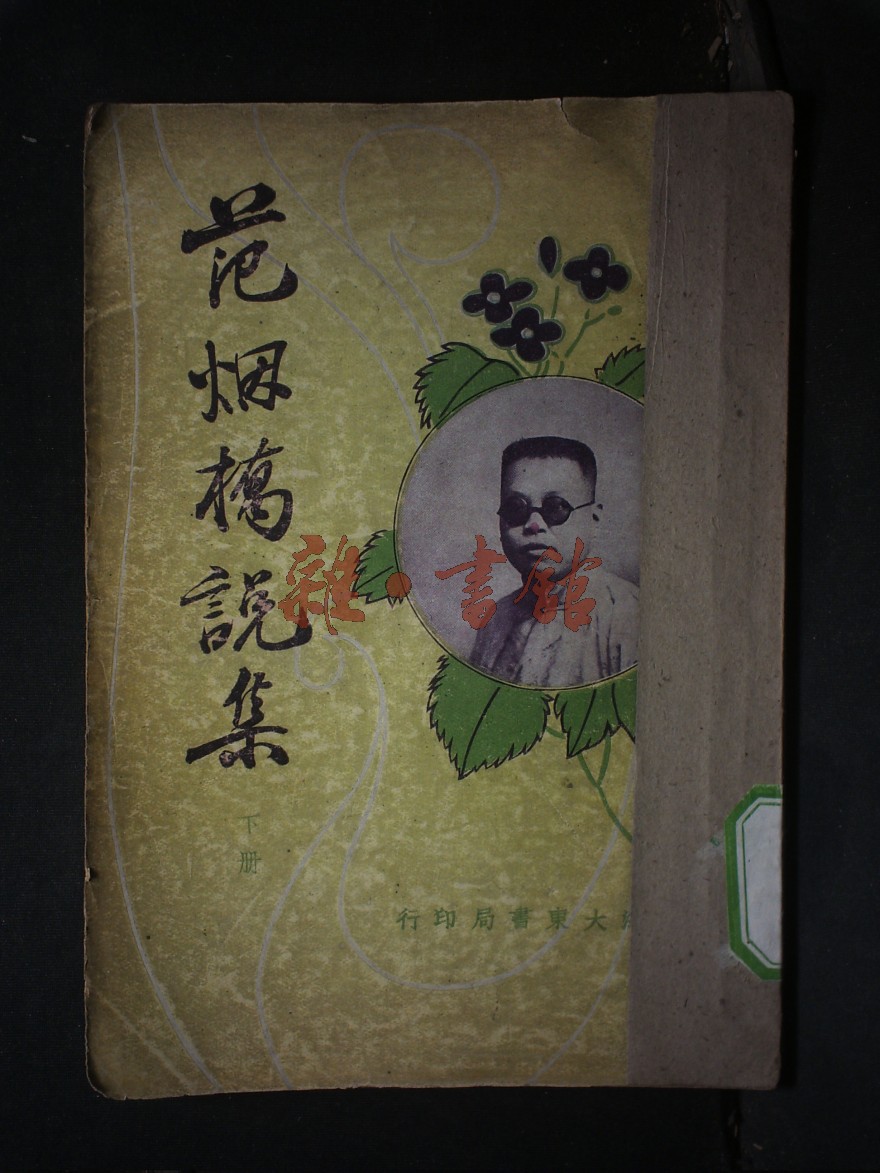 范烟橋説集
下册
大東書局印行
雜·書館